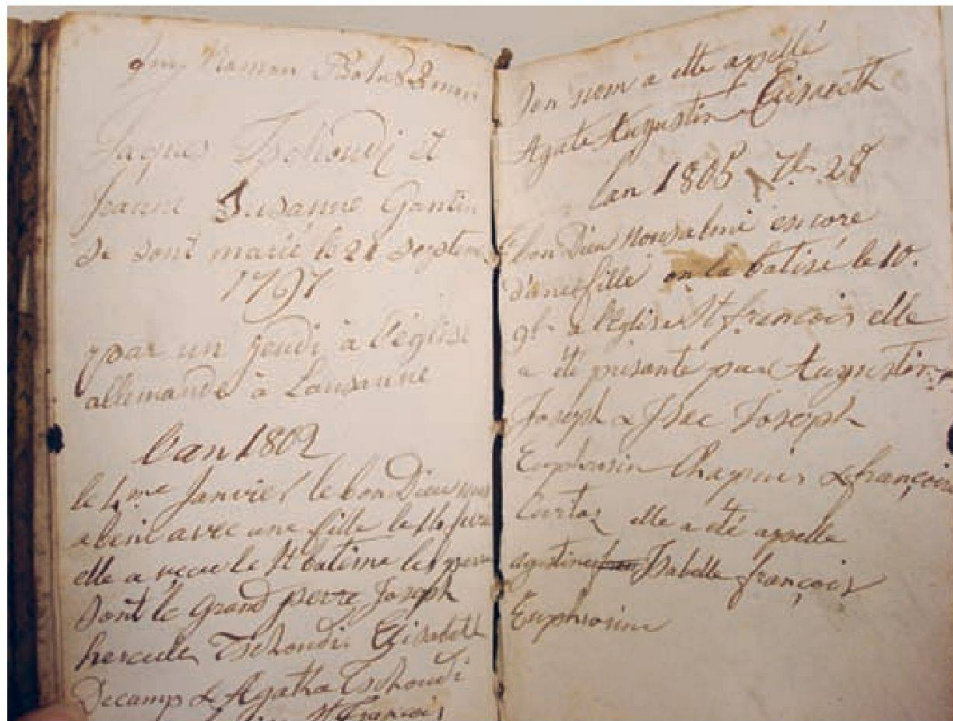 Jaques Tschoudi et
Jeanne Susanne Gantin
se sont marié le 21 septem
1797
par un jeudi à l'église
allemande à Lausanne
l'an 1802
le 4me Janvier le bon Dieu nous
a benit avec une fille le 14
elle a recu le St batême les
sont le Grand perre Joseph
hercule Tschoudi Elisabeth
Decamp & Agatha Tschoudi
St François
Son nom a ette appellé
Agate Augustine
lan 1805 28
bon Dieu nous a beni encore
d'une fille on la batisé le 10.
a l'eglise St francois elle
a été présante par Augustin
Joseph & Joseph
Euphrosin Chapuis & françoise
elle a été appelle
agustine Isabelle françois
Euphrosine